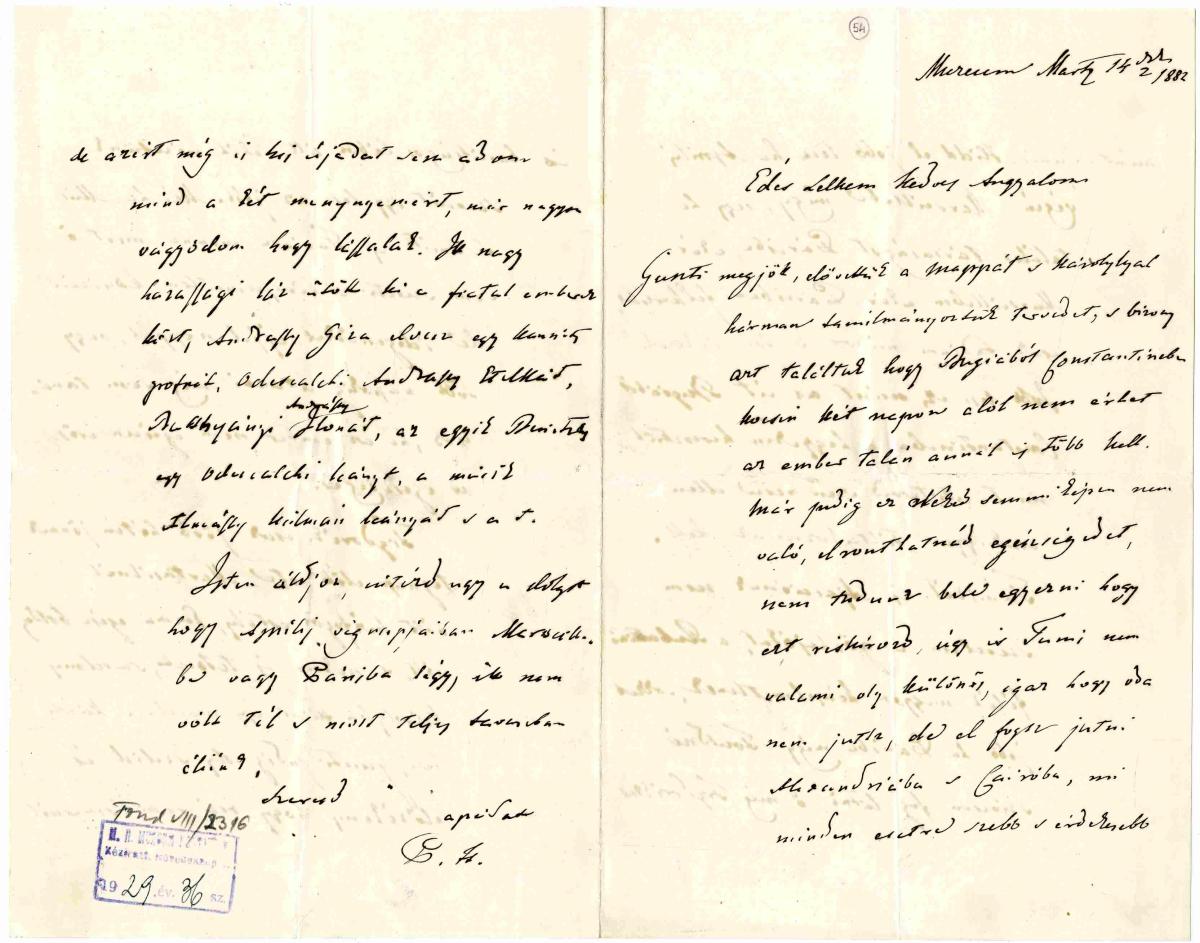 54
Museum Martz 14 1882
Édes Lelkem kedves Angyalom
Guszti megjött, elővettük a mappát s Károlylyal
hárman tanulmányoztuk tervedet, s bizony
azt találtuk hogy Bugiából Constantineba
kocsin két napon alól nem érhet
az ember talán annál is több kell.
Már pedig ez Neked semmiképen nem
való, elronthatnád egészségedet,
nem tudunk bele egyezni hogy
ezt riskirozd, úgy is Tunis nem
valami oly különös, igaz hogy oda
nem jutsz, de el fogsz jutni
Alexandriába s Cairóba, mi
minden esetre szebb s érdekesebb
de azért még is kis újadat sem adom
mind a két menyemért, már nagyon
vágyódom hogy lássalak. Itt nagy
házassági láz ütött ki a fiatal emberek
közt, Andrassy Géza elvesz egy Kaunitz
grófnőt, Odescalchi Andrassy Etelkád,
Andrássy
Batthyányi Ilonát, az egyik
egy Odescalchi leányt, a másik
Almássy Kálmán leányát s a t.
Isten áldjon, intézd ugy a dolgot
hogy Aprilis végnapjaiban Marseille-
be vagy Párisba légy, itt nem
volt tél s most teljes tavaszban
élünk,
szerető
apádat
P. F.
Fond VIII/2316
Kézirati Növedéknapló
1929. év. 36 sz.